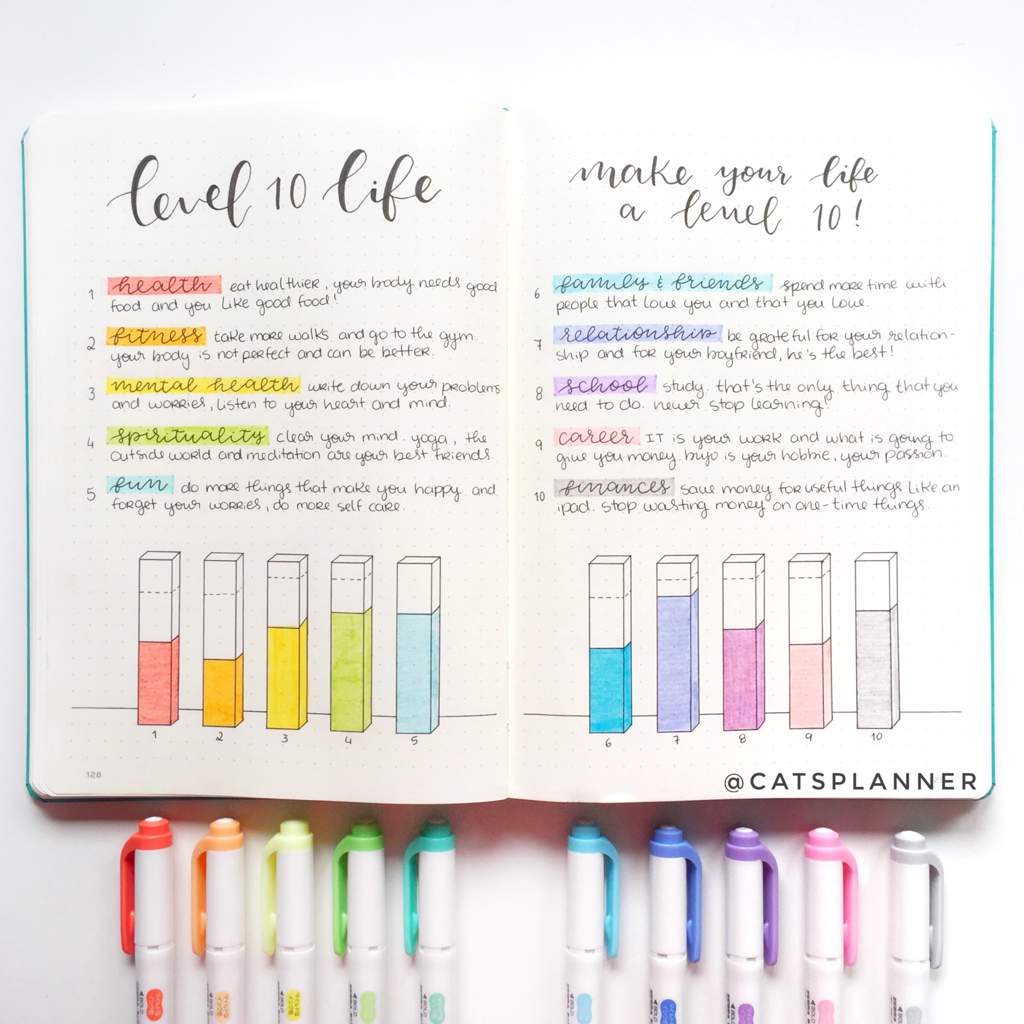 level 10 life
1 health eat healthier, your body needs good
food and you like good food!
2 fitness take more walks and go to the gym.
your body is not perfect and can be better.
3 mental health write down your problems
and worries, listen to your heart and mind.
4 spirituality clear your mind. yoga, the
outside world and meditation are your best friends.
5 fun do more things that make you happy and
forget your worries, do more self care.
1 2 3 4 5
128
make your life
a level 10!
6 family & friends spend more time with
people that love you and that you love.
7 relationship be grateful for your relation-
ship and for your boyfriend, he's the best!
8 school study. that's the only thing that you
need to do. never stop learning!
9 career IT is your work and what is going to
give you money. bujo is your hobbie, your passion.
10 finances save money for useful things like an
ipad. stop wasting money on one-time things.
6 7 8 9 10
@CATSPLANNER